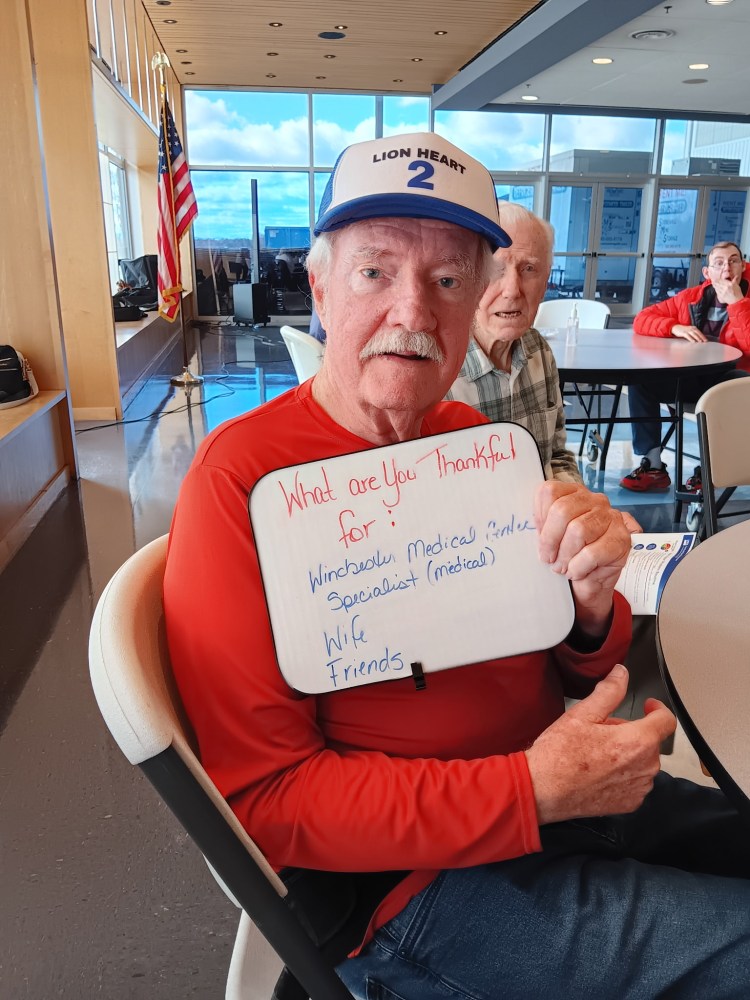 LION HEART
2
What are You Thankful
for:
Winchester Medical Center
Specialist (medical)
Wife
Friends